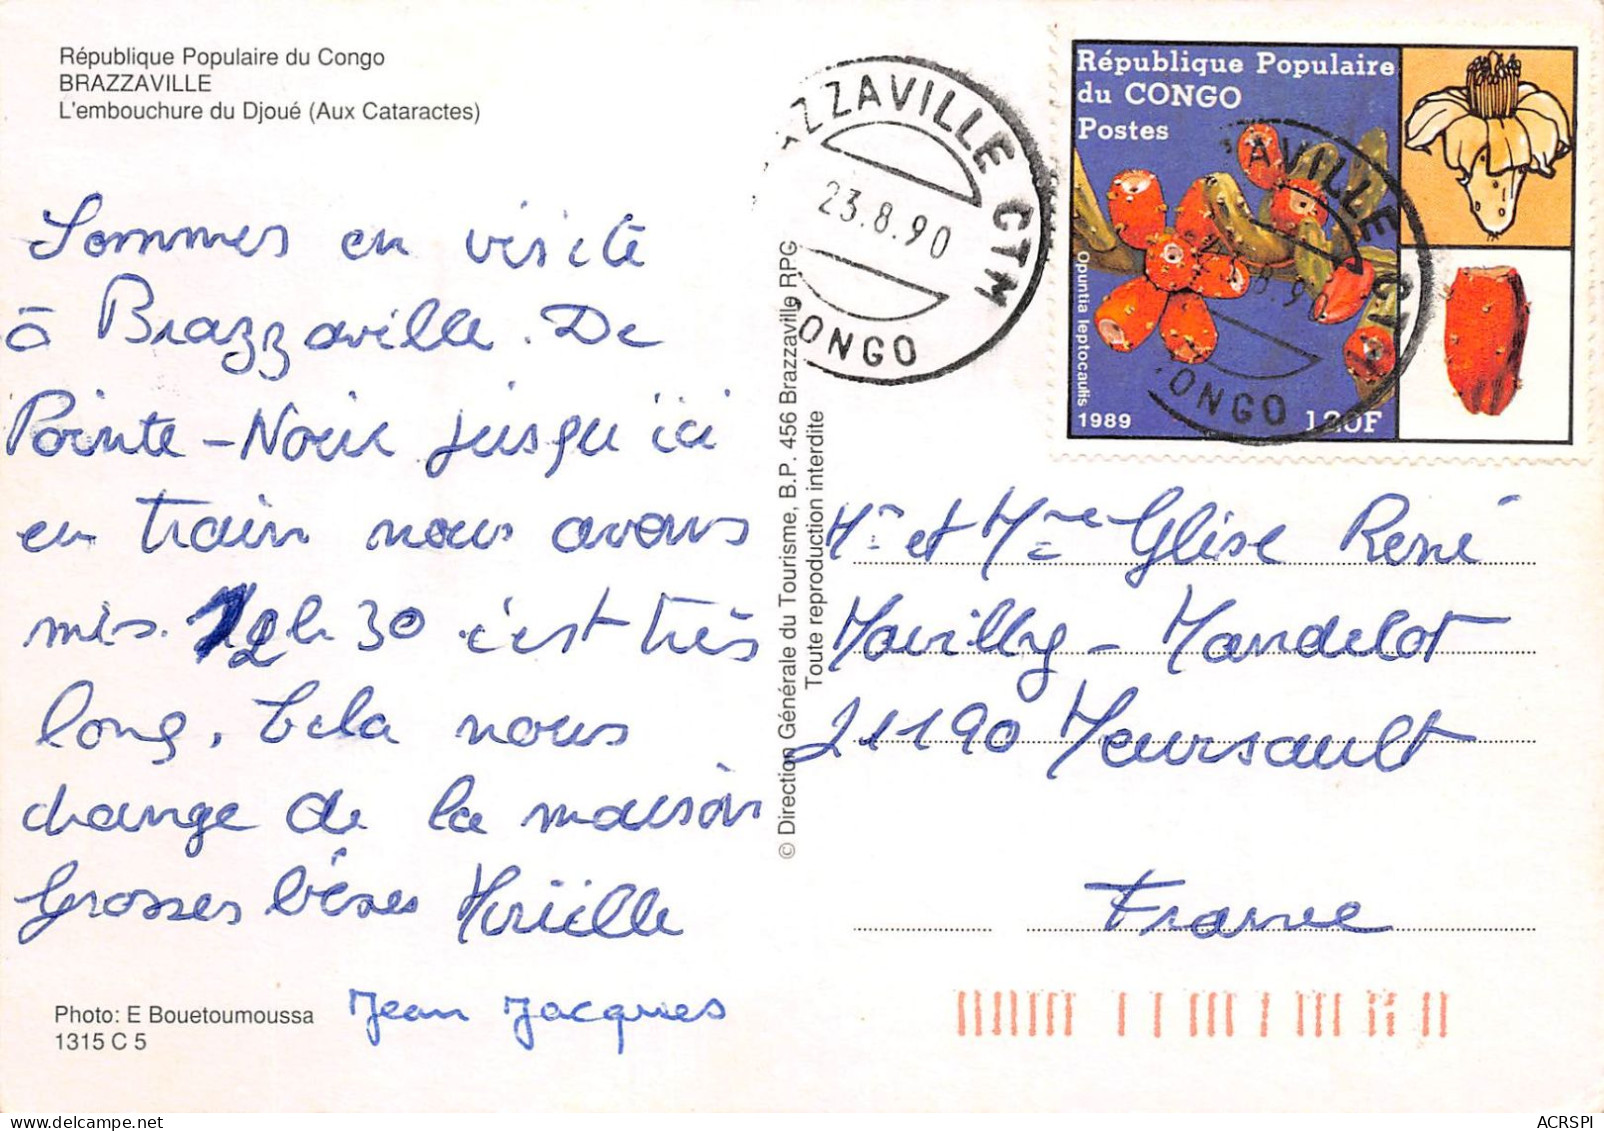 République Populaire du Congo
BRAZZAVILLE
L'embouchure du Djoué (Aux Cataractes)
Sommes en visite
à Brazzaville. De
Pointe-Noire jusqu'ici
en train nous avons
mis 12h30 c'est très
long, cela nous
change de la maison
Grosses bises Mireille
Jean Jacques
Photo: E Bouetoumoussa
1315 C 5
© Direction Générale du Tourisme, B.P. 456 Brazzaville RPG
Toute reproduction interdite
AZZAVILLE CTM
23.8.90
CONGO
République Populaire
du CONGO
Postes
Opuntia leptocaulis
1989
120F
AVILLE CTM
8.90
ONGO
Mr et Mme Glise René
Mavilly-Mandelot
21190 Meursault
France
ACRSPI